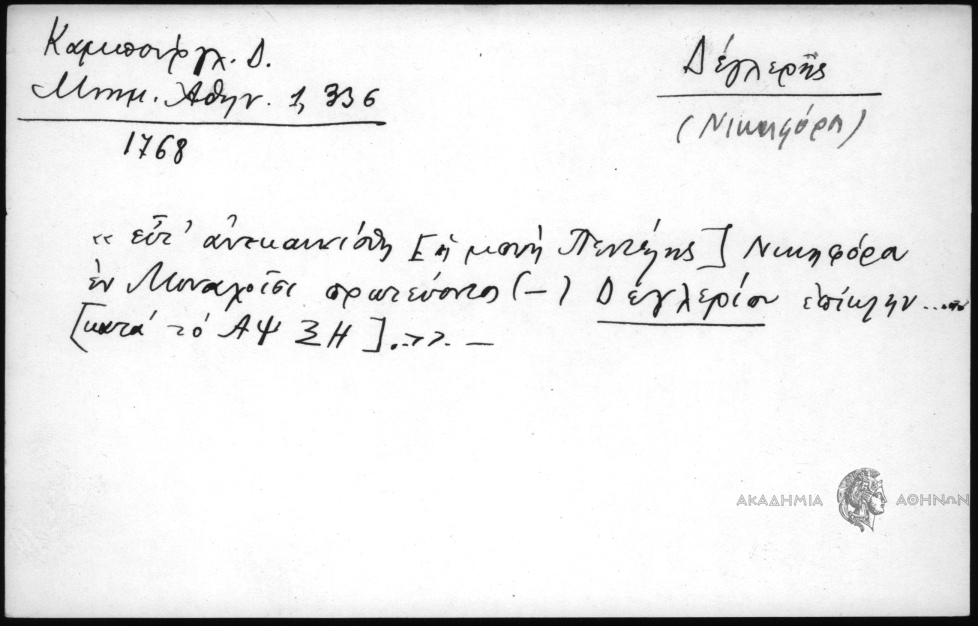 Καμπούργλ. Δ.
Μνημ. Ἀθην. 1, 336
1768
Δέγλερης
(Νικηφόρα)
« εὖτ' ἀνεκαινίσθη [ἡ μονὴ Πεντέλης] Νικηφόρα
ἐν Μοναχοῖσι πρωτεύοντος (–) Δέγλερίου ἐπίκλην ...
[κατὰ τὸ ΑΨΞΗ].». –
ΑΚΑΔΗΜΙΑ ΑΘΗΝΩΝ